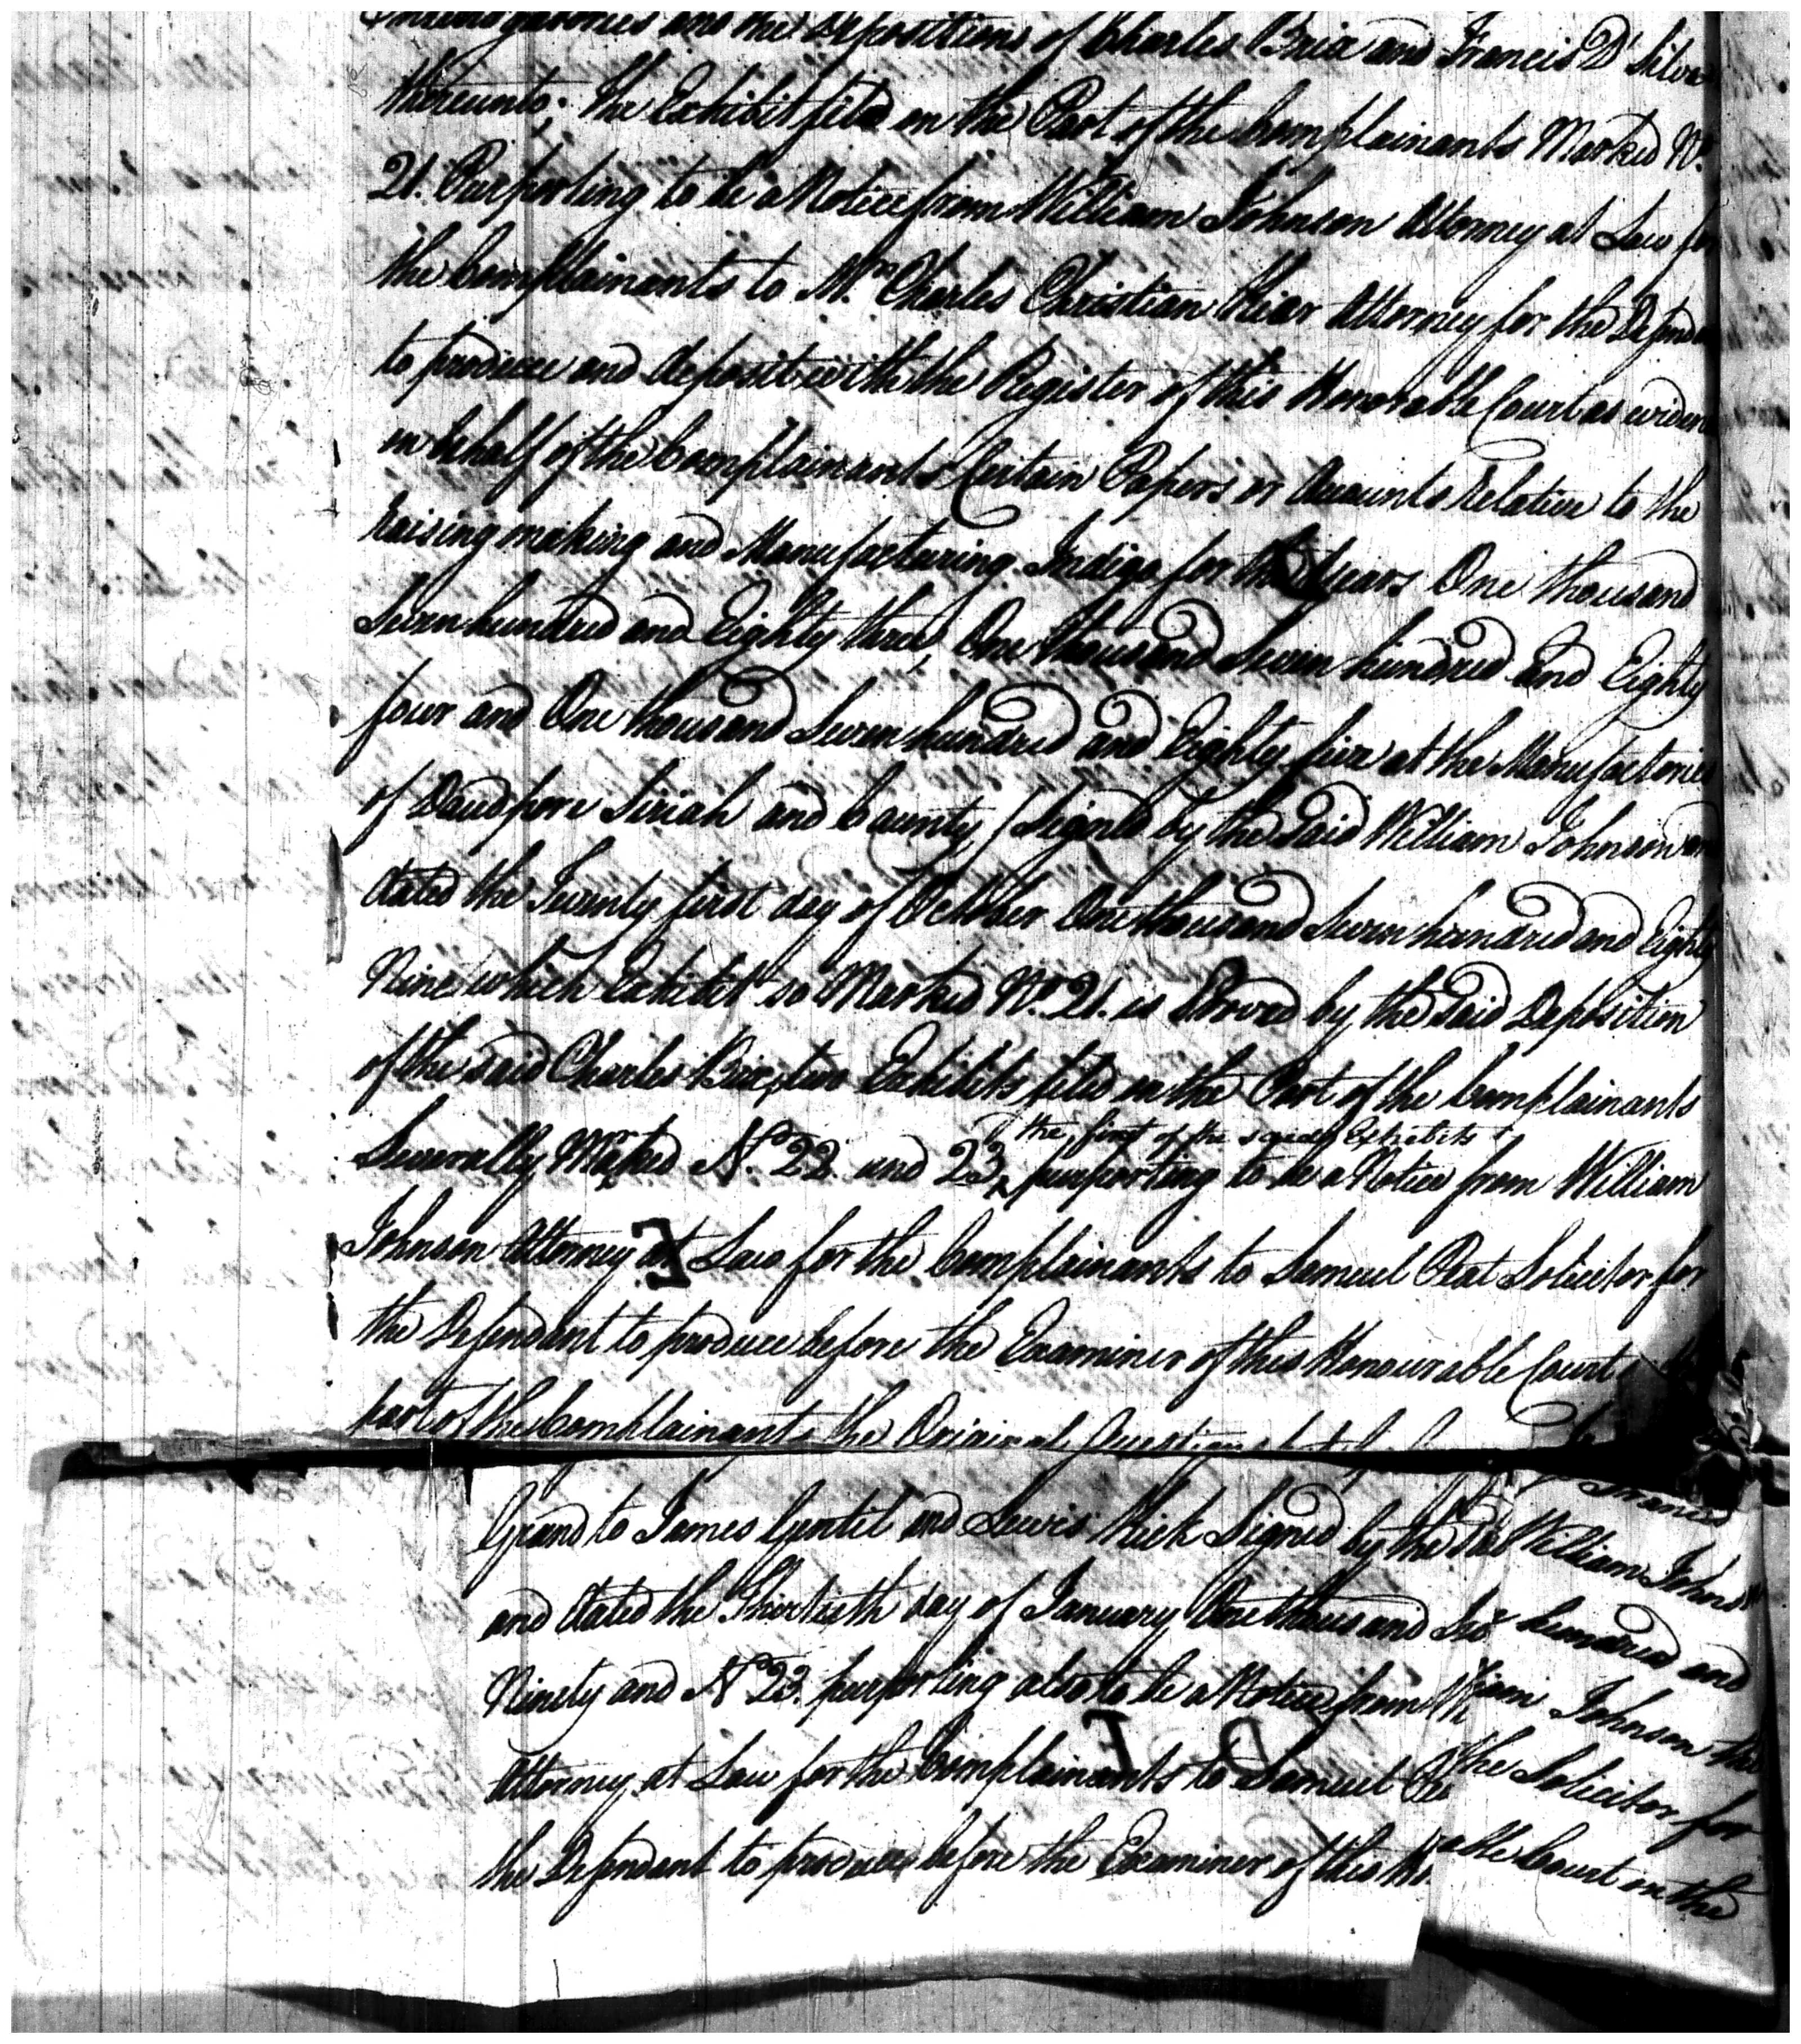 Interrogatories and the Depositions of Charles Brix and Francis D'Silva
thereunto; the Exhibit filed on the Part of the Complainants Marked No.
21. Purporting to be a Notice from William Johnson Attorney at Law for
the Complainants to Mr. Charles Christian Attorney for the Defend
to produce and deposit with the Register of this Honorable Court as eviden
in behalf of the Complainants Certain Papers or Accounts relative to the
raising making and Manufacturing Indigo for the Years One thousand
Seven hundred and Eighty three, One thousand Seven hundred and Eighty
four and One thousand Seven hundred and Eighty five at the Manufactories
of Daudpore Siriah and Signed by the said William Johnson an
dated the Twenty first day of October One thousand Seven hundred and Eighty
Nine which Exhibit so Marked No. 21. is Proved by the said Deposition
of the said Charles Brix, two Exhibits filed on the Part of the Complainants
the first of the said Exhibits
Severally Marked No. 22. and 23, purporting to be a Notice from William
Johnson Attorney at Law for the Complainants to Samuel Peat Solicitor for
the Defendant to produce before the Examiner of this Honourable Court
part of the Complainants the Original
Francis
Grand to James Gentil and Lewis Signed by the William Johns
and dated the Thirtieth day of January One thousand hundred and
Ninety and No 23. purporting also to be a Notice from Wiam Johnson the
Attorney at Law for the Complainants to Samuel Pe the Solicitor for
the Defendant to produce before the Examiner of this Ho able Court on the